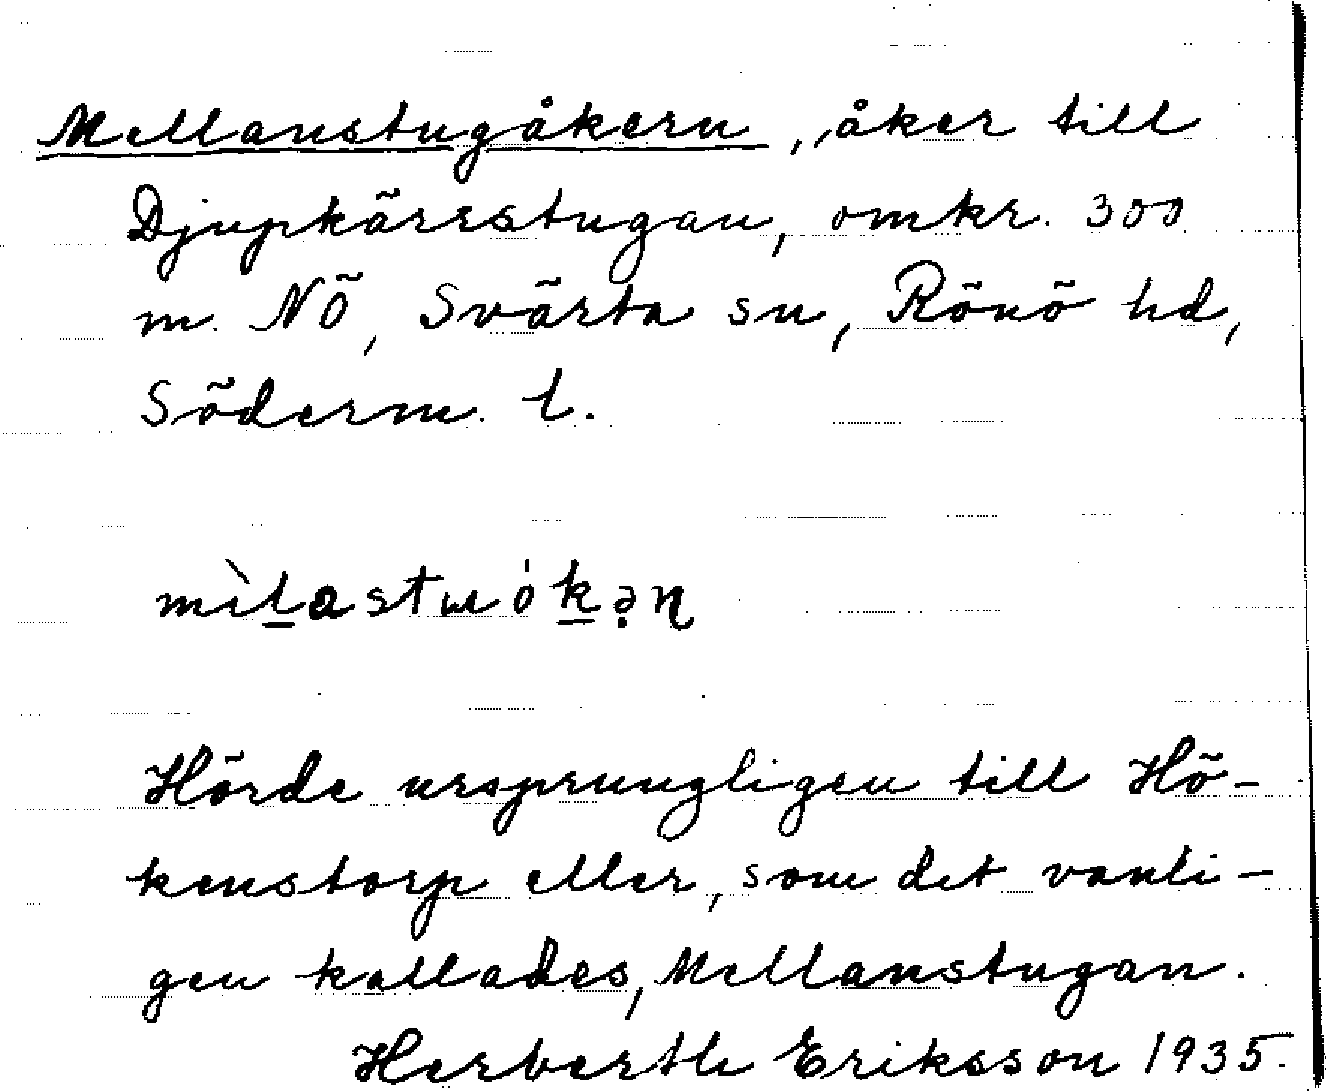 Mellanstugåkern, åker till
Djupkärrstugan, omkr. 300
m. NÖ, Svärta sn, Rönö hd,
Söderm. l.
Hörde ursprungligen till Hö-
kenstorp eller, som det vanli-
gen kallades, Mellanstugan.
Herberth Eriksson 1935.